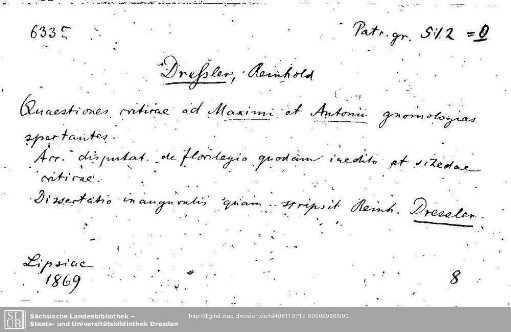 6335 Patr. gr. 512 = 0
Dressler, Reinhold
Quaestiones criticae ad Maximi et Antonii gnomologias
spectantes.
Acc. disputat. de florilegio quodam inedito et scedae
criticae.
Dissertatio inauguralis quam scripsit Reinh. Dressler.
Lipsiae
1869 8
Sächsische Landesbibliothek –
Staats- und Universitätsbibliothek Dresden